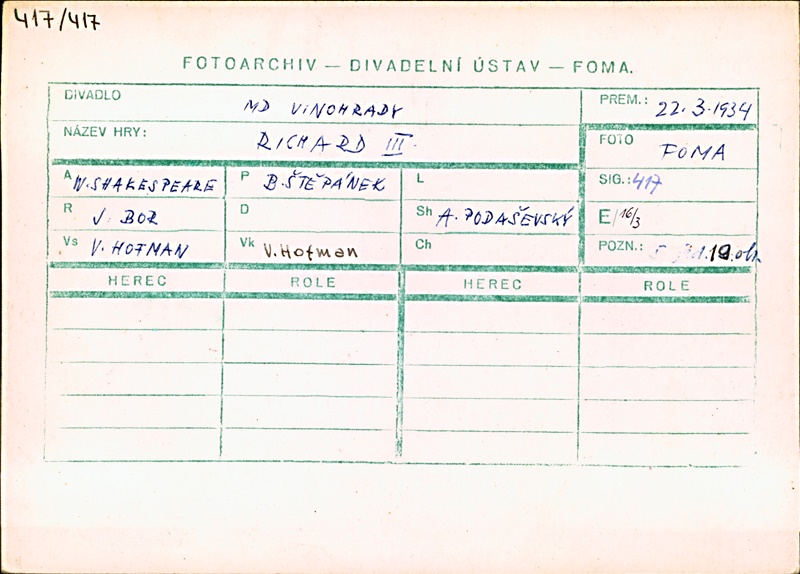 417/417
FOTOARCHIV — DIVADELNÍ ÚSTAV — FOMA.
DIVADLO MD VINOHRADY PREM.: 22.3.1934
NÁZEV HRY: RICHARD III. FOTO FOMA
A W. SHAKESPEARE P B. ŠTĚPÁNEK L SIG.: 417
R J. BOR D Sh A. PODAŠEVSKÝ E/16/3
Vs V. HOFMAN Vk V. Hofman Ch POZN.: 19.obr
HEREC ROLE HEREC ROLE